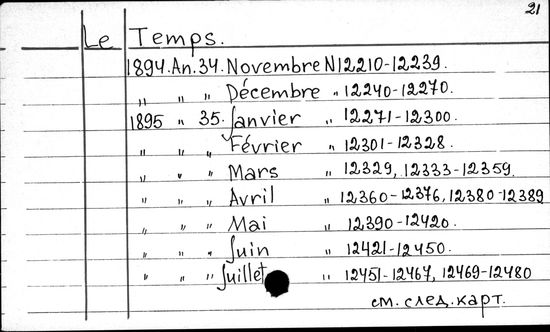 21
Le Temps.
1894. An. 34. Novembre N 12210-12239.
" " " Décembre " 12240-12270.
1895 " 35. Janvier " 12271-12300.
" " " Février " 12301-12328.
" " " Mars " 12329, 12333-12359.
" " " Avril " 12360-12376, 12380-12389
" " " Mai " 12390-12420.
" " " Juin " 12421-12450.
" " " Juillet " 12451-12467, 12469-12480
см. след. карт.